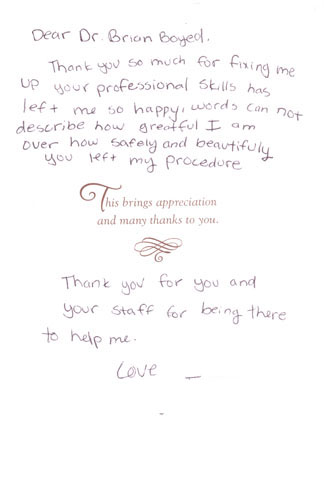 Dear Dr. Brian Boyed,
Thank you so much for fixing me
up your professional skills has
left me so happy, words can not
describe how greatful I am
over how safely and beautifuly
you left my procedure
This brings appreciation
and many thanks to you.
Thank you for you and
your staff for being there
to help me.
Love